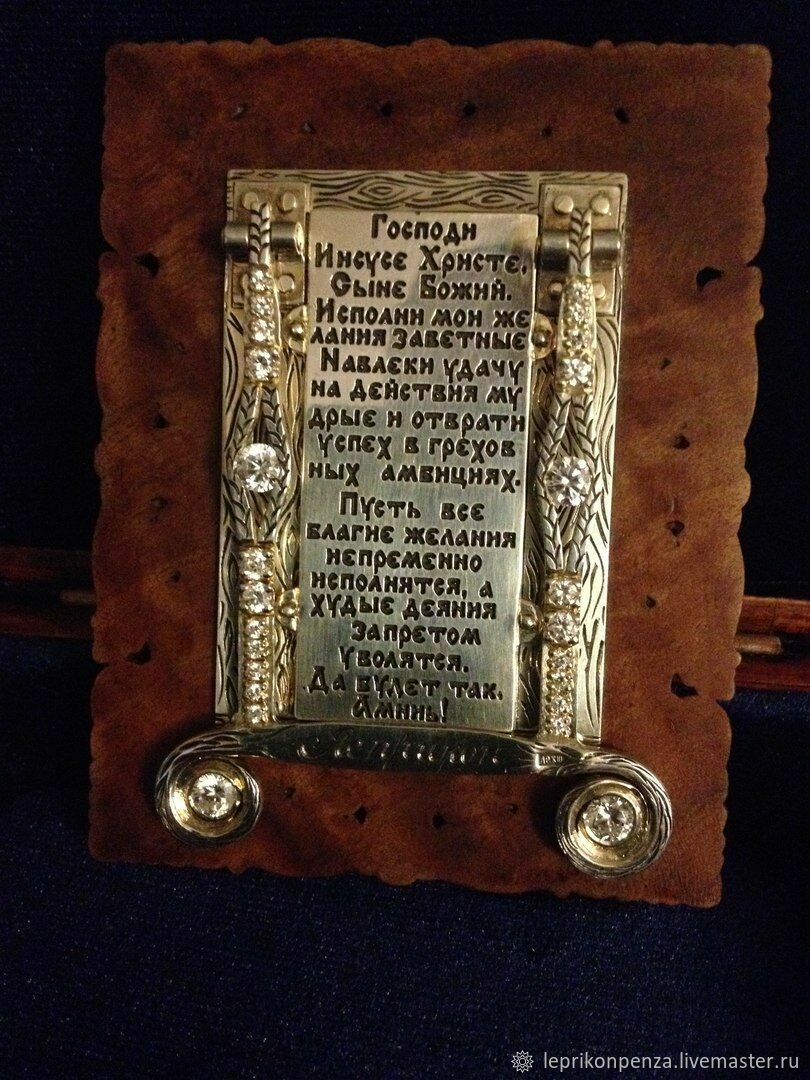 Господи
Иисусе Христе,
Сыне Божий.
Исполни мои же
лания заветные
Navлеки удачу
на действия му
дрые и отврати
успех в грехов
ных амбициях.
Пусть все
благие желания
непременно
исполнятся, а
худые деяния
запретом
уволятся.
Да будет так.
Аминь!
Леприкон
leprikonpenza.livemaster.ru